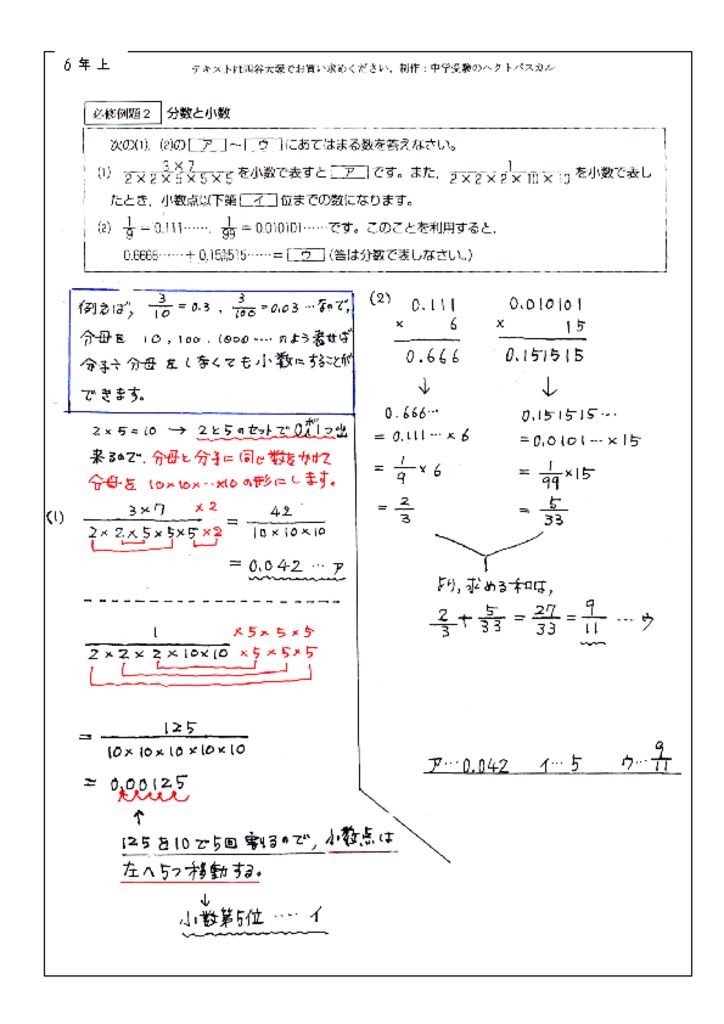 6年上
テキストは四谷大塚でお買い求めください、制作:中学受験のヘクトパスカル
必修例題2 分数と小数
次の(1), (2)の ア ～ ウ にあてはまる数を答えなさい。
(1) 3×7/2×2×5×5×5 を小数で表すと ア です。また, 1/2×2×2×10×10 を小数で表し
たとき, 小数点以下第 イ 位までの数になります。
(2) 1/9=0.111……, 1/99=0.010101……です。このことを利用すると,
0.6666……+0.151515……= ウ (答は分数で表しなさい。)
例えば, 3/10=0.3, 3/100=0.03…なので,
分母を 10, 100, 1000…のよう表せば
分子÷分母 をしなくても小数にすることが
できます。
2×5=10 → 2と5のセットで0が1つ出
来るので, 分母と分子に同じ数をかけて
分母を 10×10×…×10 の形にします。
(1) 3×7 ×2/2×2×5×5×5×2 = 42/10×10×10
=0.042 … ア
1 ×5×5×5/2×2×2×10×10 ×5×5×5
= 125/10×10×10×10×10
= 0.00125
↑
125を10で5回割るので, 小数点は
左へ5つ移動する。
↓
小数第5位 …… イ
(2) 0.111
× 6
0.666
↓
0.666…
=0.111…×6
=1/9×6
=2/3
0.010101
× 15
0.151515
↓
0.151515…
=0.0101…×15
=1/99×15
=5/33
より, 求める和は,
2/3+5/33=27/33=9/11 … ウ
ア…0.042 イ…5 ウ…9/11